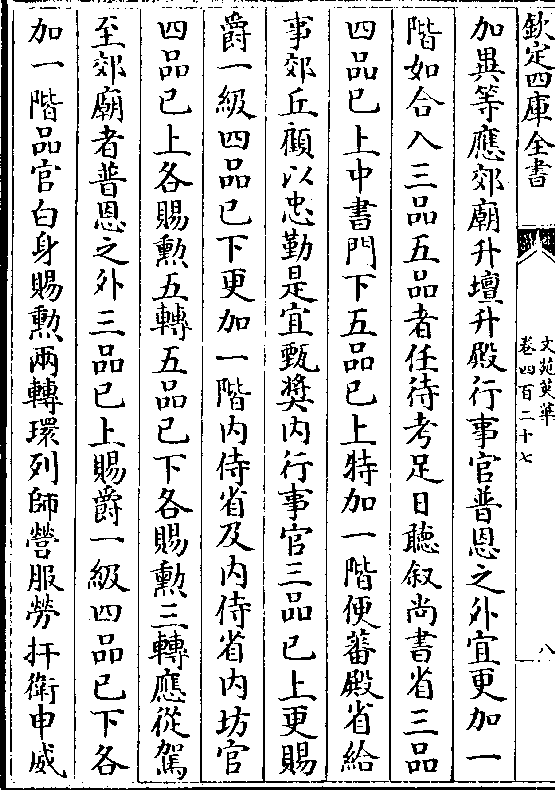 欽定四庫全書
文苑英華
卷四百二十七
八
加異等應郊廟升壇升殿行事官普恩之外宜更加一
階如合入三品五品者任待考足日聽叙尚書省三品
四品已上中書門下五品已上特加一階便蕃殿省給
事郊丘顧以忠勤是宜甄奬内行事官三品已上更賜
爵一級四品已下更加一階内侍省及内侍省内坊官
四品已上各賜勲五轉五品已下各賜勲三轉應從駕
至郊廟者普恩之外三品已上賜爵一級四品已下各
加一階品官白身賜勲兩轉環列師營服勞扞衛申威